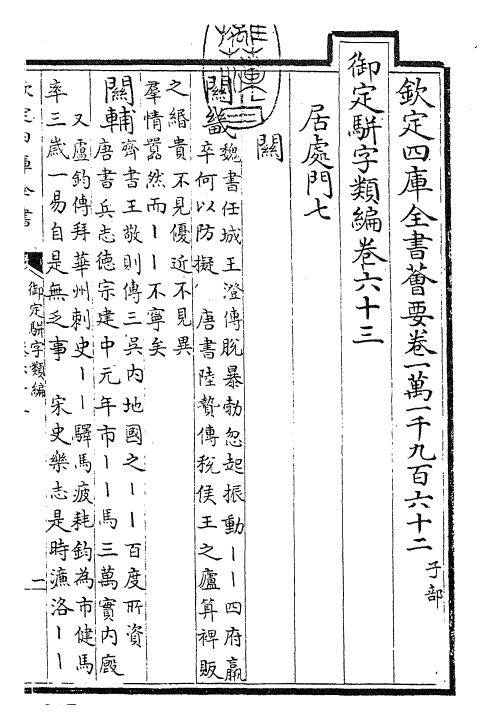 欽定四庫全書薈要卷一萬一千九百六十二 子部
御定駢字類編卷六十三
居處門七
關
關畿 魏書任城王澄傳脫暴勃忽起振動丨丨四府羸
卒何以防擬 唐書陸贄傳稅侯王之廬算裨販
之緡貴不見優近不見異
羣情囂然而丨丨不寧矣
關輔 齊書王敬則傳三吳内地國之丨丨百度所資
唐書兵志德宗建中元年市丨丨馬三萬實内廄
又盧鈞傳拜華州刺史丨丨驛馬疲耗鈞為市健馬
率三歲一易自是無乏事 宋史樂志是時濂洛丨丨
欽定四庫全書
御定駢字類編